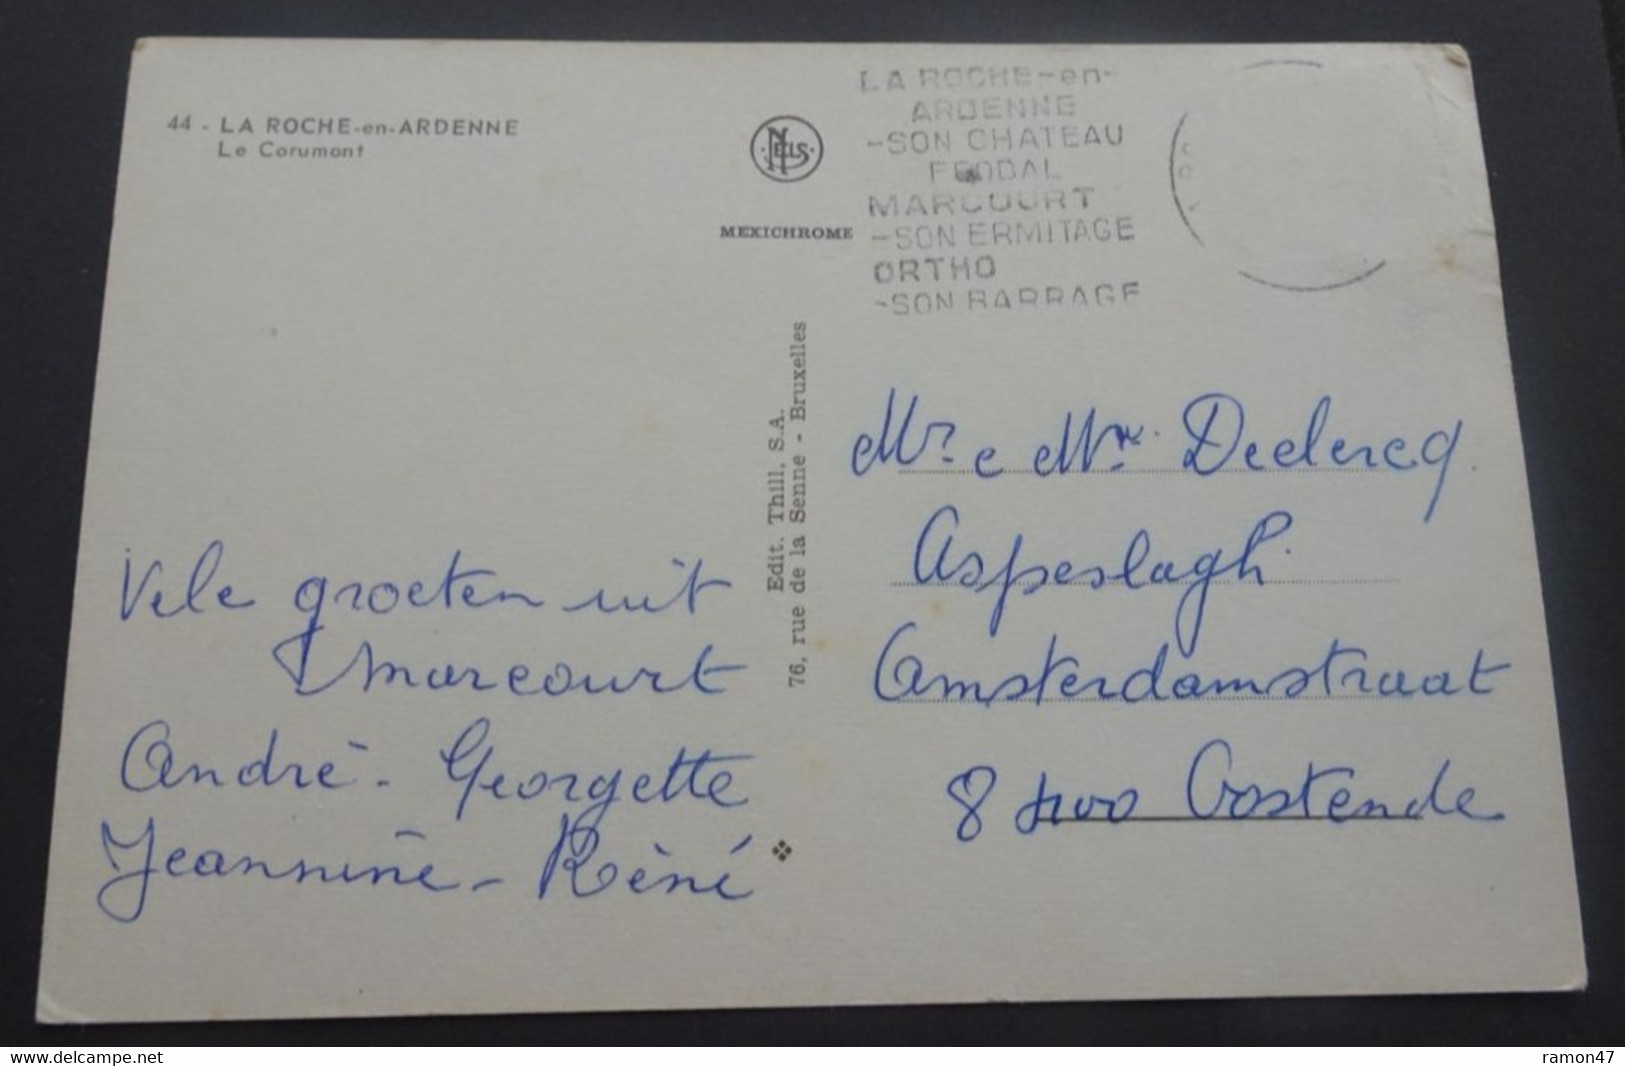 44 - LA ROCHE-en-ARDENNE
Le Corumont
NELS
MEXICHROME
LA ROCHE-en-
ARDENNE
-SON CHATEAU
FEODAL
MARCOURT
-SON ERMITAGE
ORTHO
-SON BARRAGE
Edit. Thill, S.A.
76, rue de la Senne - Bruxelles
Vele groeten uit
Marcourt
Andrè - Georgette
Jeannine - Rèné
Mr. e Mr. Declercq
Aspeslagh.
Amsterdamstraat
8400 Oostende
delcampe.net
ramon47